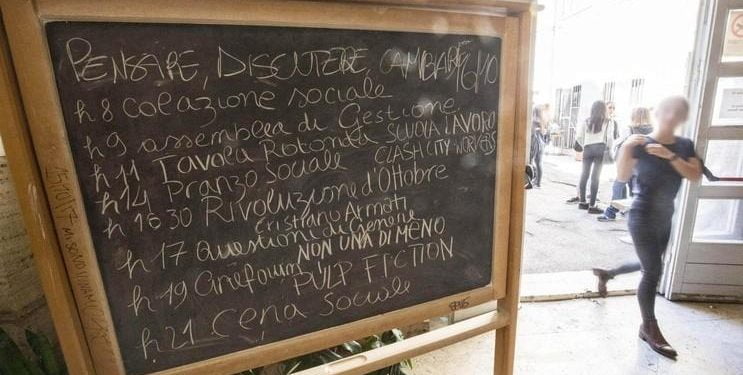 PENSARE, DISCUTERE, CAMBIARE
h 8 colazione sociale
h 9 assemblea di Gestione
h 11 Tavola Rotonda SCUOLA LAVORO
h 14 Pranzo Sociale CLASH CITY WORKERS
h 16 30 Rivoluzione d'Ottobre
Cristiano Armati
h 17 Questioni di Genere
NON UNA DI MENO
h 19 Cineforum PULP FICTION
h 21 Cena Sociale